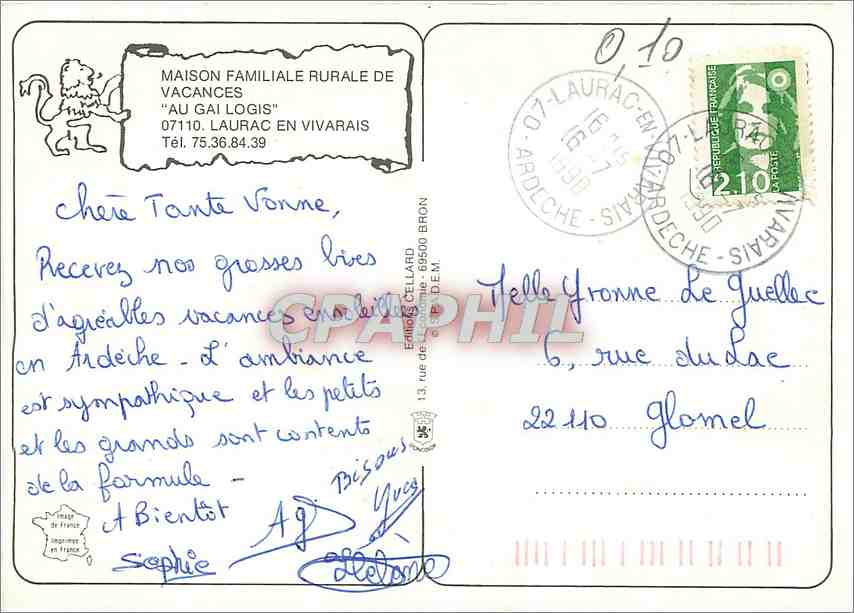 MAISON FAMILIALE RURALE DE
VACANCES
"AU GAI LOGIS"
07110. LAURAC EN VIVARAIS
Tél. 75.36.84.39
chère Tante Vonne,
Recevez nos grosses bises
d'agréables vacances ensoleillées
en Ardèche - L'ambiance
est sympathique et les petits
et les grands sont contents
de la formule -
A Bientôt
Sophie
Bisous
Yves
Image
de France
Imprimée
en France
Editions CELLARD
13, rue de l'Economie - 69500 BRON
© S.P.A.D.E.M.
0,10
07-LAURAC-EN-VIVARAIS
16 H15
16 -7
1990
ARDECHE
07-LAURAC-EN-VIVARAIS
ARDECHE
REPUBLIQUE FRANÇAISE
2,10
LA POSTE
Melle Yvonne Le Guellec
6, rue du Lac
22110 Glomel
CPAPHIL